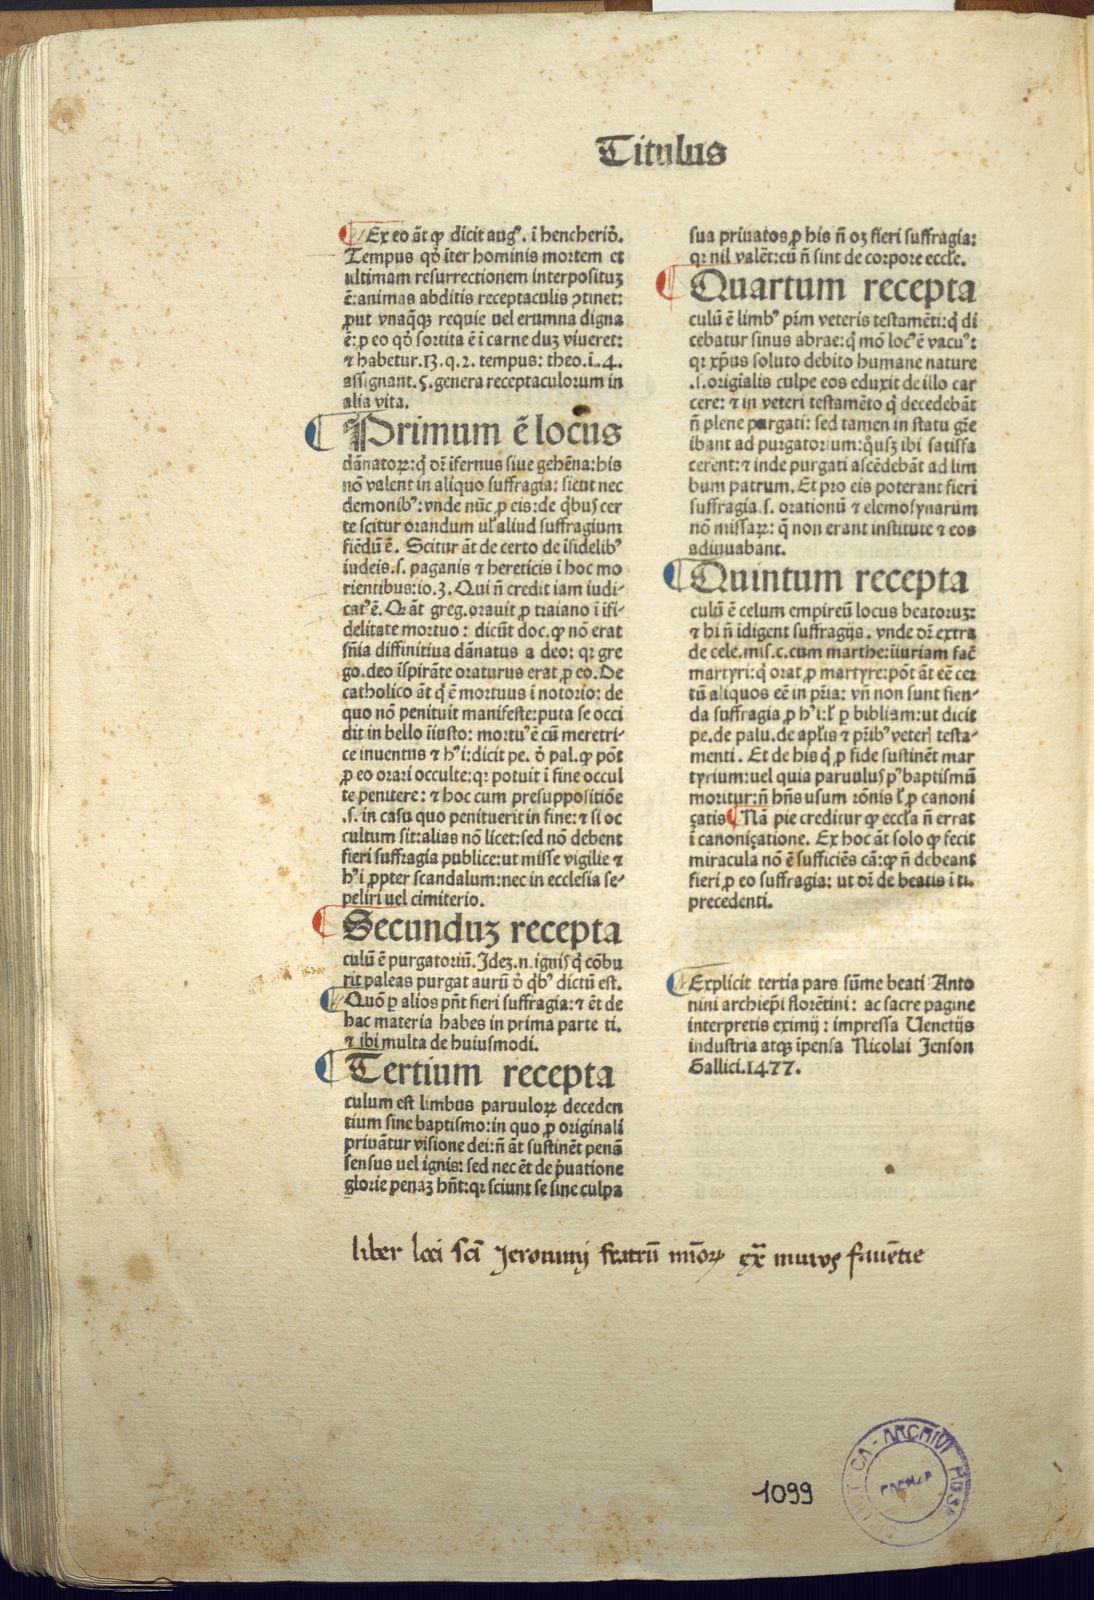 Titulus
Ex eo āt ꝙ dicit augꝰ. ī hencheriō.
Tempus qđ īter hominis mortem et
ultimam resurrectionem interposituꝫ
ē: animas abditis receptaculis ꝯtinet:
ꝓut vnaq̄qꝫ requie uel erumna digna
ē: ꝑ eo qđ sortita ē ī carne duꝫ viueret:
⁊ habetur.13.q.2. tempus: theo.ī.4.
assignant.5.genera receptaculorum in
alia vita.
Primum ē locus
dānatoꝝ: q̄ dr̄ īfernus siue gehēna: his
nō valent in aliquo suffragia: sicut nec
demonibꝰ: vnde nūc ꝓ eis: de q̄bus cer
te scitur orandum ul̄ aliud suffragium
fiēdū ē. Scitur āt de certo de īfidelibꝰ
iudeis.s. paganis ⁊ hereticis ī hoc mo
rientibus: io.3. Qui n̄ credit iam iudi-
catꝰ ē. Qr̄ āt greg. orauit ꝓ traiano ī ifi-
delitate mortuo: dicūt doc. ꝙ nō erat
sn̄ia diffinitiua dānatus a deo: qr gre
go. deo īspirāte oraturus erat ꝓ eo. De
catholico āt q̄ ē mortuus ī notorio: de
quo nō penituit manifeste: puta se occi
dit in bello īiusto: mortuꝰ ē cū meretri-
ce inuentus ⁊ hꝰi: dicit pe. đ pal. ꝙ pōt
ꝓ eo orari occulte: qr potuit ī fine occul
te penitere: ⁊ hoc cum presuppositiōe
.s. in casu quo penituerit in fine: ⁊ si oc
cultum sit: alias nō licet: sed nō debent
fieri suffragia publice: ut misse vigilie ⁊
hꝰi ꝓpter scandalum: nec in ecclesia se-
peliri uel cimiterio.
Secunduꝫ recepta
culū ē purgatoriū. Jdeꝫ.n. ignis q̄ cōbu
rit paleas purgat aurū đ q̄bꝰ dictū est.
Quō ꝑ alios pn̄t fieri suffragia: ⁊ ēt de
hac materia habes in prima parte ti.
⁊ ibi multa de huiusmodi.
Tertium recepta
culum est limbus paruuloꝝ deceden
tium sine baptismo: in quo ꝓ originali
priuātur visione dei: n̄ āt sustinēt penā
sensus uel ignis: sed nec ēt de p̄uatione
glorie penaꝫ hn̄t: qr sciunt se sine culpa
sua priuatos ꝓ his n̄ oꝫ fieri suffragia:
qr nil valēt: cū n̄ sint de corpore eccl̄e.
Quartum recepta
culū ē limbꝰ pr̄m veteris testamēti: q̄ di
cebatur sinus abrae: q̄ mō locꝰ ē vacuꝰ:
qr xp̄us soluto debito humane nature
.s. origīalis culpe eos eduxit de illo car
cere: ⁊ in veteri testamēto q̄ decedebāt
n̄ plene purgati: sed tamen in statu gr̄e
ibant ad purgatorium: q̄usꝫ ibi satisfa
cerent: ⁊ inde purgati ascēdebāt ad lim
bum patrum. Et pro eis poterant fieri
suffragia.s. orationū ⁊ elemosynarum
nō missaꝝ: q̄ non erant institute ⁊ eos
adiuuabant.
Quintum recepta
culū ē celum empireū locus beatoruꝫ:
⁊ hi n̄ īdigent suffragijs. vnde dr̄ extra
de cele.mis.c.cum marthe: īiuriam fac̄
martyri: q̄ orat ꝓ martyre: pōt āt eē cer
tū aliquos eē in pr̄ia: vn̄ non sunt fien-
da suffragia ꝓ hꝰi: ul̄ ꝑ bibliam: ut dicit
pe. de palu. de apl̄is ⁊ pr̄ibꝰ veteri testa-
menti. Et de his q̄ ꝓ fide sustinēt mar
tyrium: uel quia paruulus pꝰ baptismū
moritur: n̄ hn̄s usum rōnis ul̄ ꝓ canoni
çatis Nā pie creditur ꝙ eccl̄a n̄ errat
ī canoniçatione. Ex hoc āt solo ꝙ fecit
miracula nō ē sufficiēs cā: ꝙ n̄ debeant
fieri ꝓ eo suffragia: ut dr̄ de beatis ī ti.
precedenti.
Explicit tertia pars sūme beati Anto
nini archiep̄i florētini: ac sacre pagine
interpretis eximij: impressa Uenetijs
industria atqꝫ īpensa Nicolai Jenson
Gallici.1477.
liber loci scī Jeronimj fratrū mīorꝝ ext̄ muros fauētie
1099
ARCHIVI